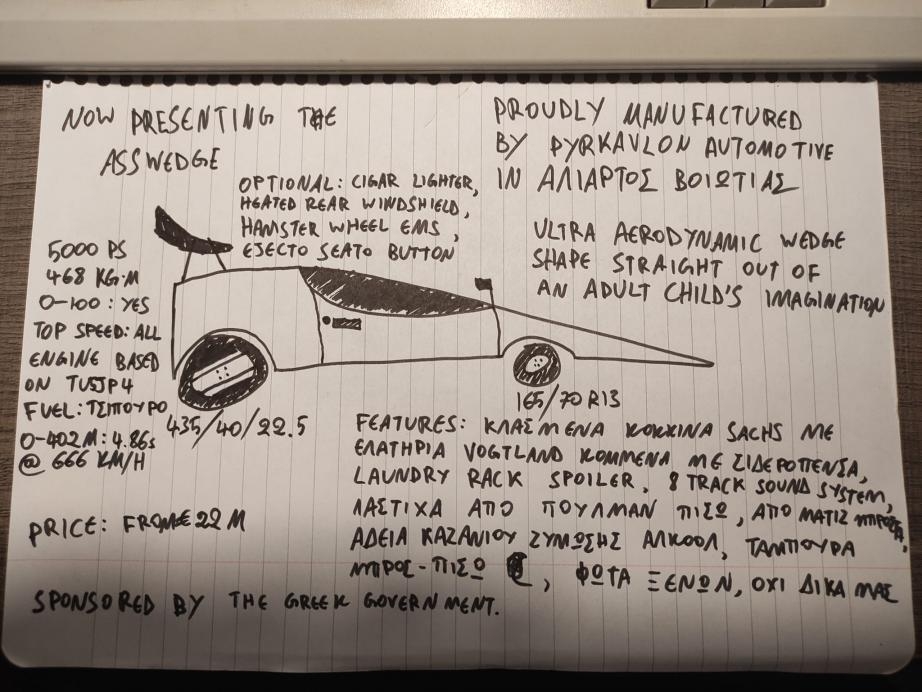 NOW PRESENTING THE
ASSWEDGE
PROUDLY MANUFACTURED
BY PYRKAVLON AUTOMOTIVE
IN ΑΛΙΑΡΤΟΣ ΒΟΙΩΤΙΑΣ
OPTIONAL: CIGAR LIGHTER,
HEATED REAR WINDSHIELD,
HAMSTER WHEEL EMS,
EJECTO SEATO BUTTON
ULTRA AERODYNAMIC WEDGE
SHAPE STRAIGHT OUT OF
AN ADULT CHILD'S IMAGINATION
5000 PS
468 KG·M
0-100: YES
TOP SPEED: ALL
ENGINE BASED
ON TU5JP4
FUEL: ΤΣΙΠΟΥΡΟ
0-402M: 4.86s
@ 666 KM/H
435/40/22.5
165/70 R13
FEATURES: ΚΛΑΣΜΕΝΑ ΚΟΚΚΙΝΑ SACHS ΜΕ
ΕΛΑΤΗΡΙΑ VOGTLAND ΚΟΜΜΕΝΑ ΜΕ ΣΙΔΕΡΟΠΕΝΣΑ,
LAUNDRY RACK SPOILER, 8 TRACK SOUND SYSTEM,
ΛΑΣΤΙΧΑ ΑΠΟ ΠΟΥΛΜΑΝ ΠΙΣΩ, ΑΠΟ ΜΑΤΙΖ ΜΠΡΟΣΤΑ,
ΑΔΕΙΑ ΚΑΖΑΝΙΟΥ ΖΥΜΩΣΗΣ ΑΛΚΟΟΛ, ΤΑΜΠΟΥΡΑ
ΜΠΡΟΣ-ΠΙΣΩ, ΦΩΤΑ ΞΕΝΩΝ, ΟΧΙ ΔΙΚΑ ΜΑΣ
PRICE: FROM €22 M
SPONSORED BY THE GREEK GOVERNMENT.